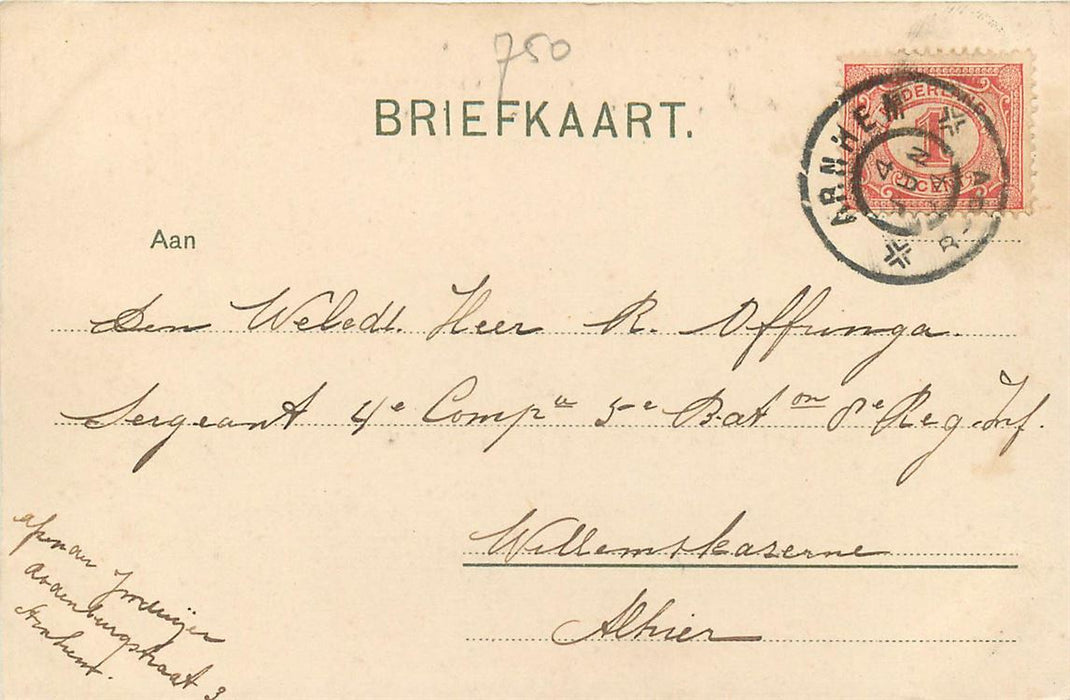 750
BRIEFKAART.
NEDERLAND
1
CENT
ARNHEM
4
Aan
Den Weledl. Heer R. Offringa.
Sergeant 4e Compie 5e Baton 8e Reg. Inf.
Willemskazerne
Alhier
afz.
Meijer
straat 3
Arnhem.